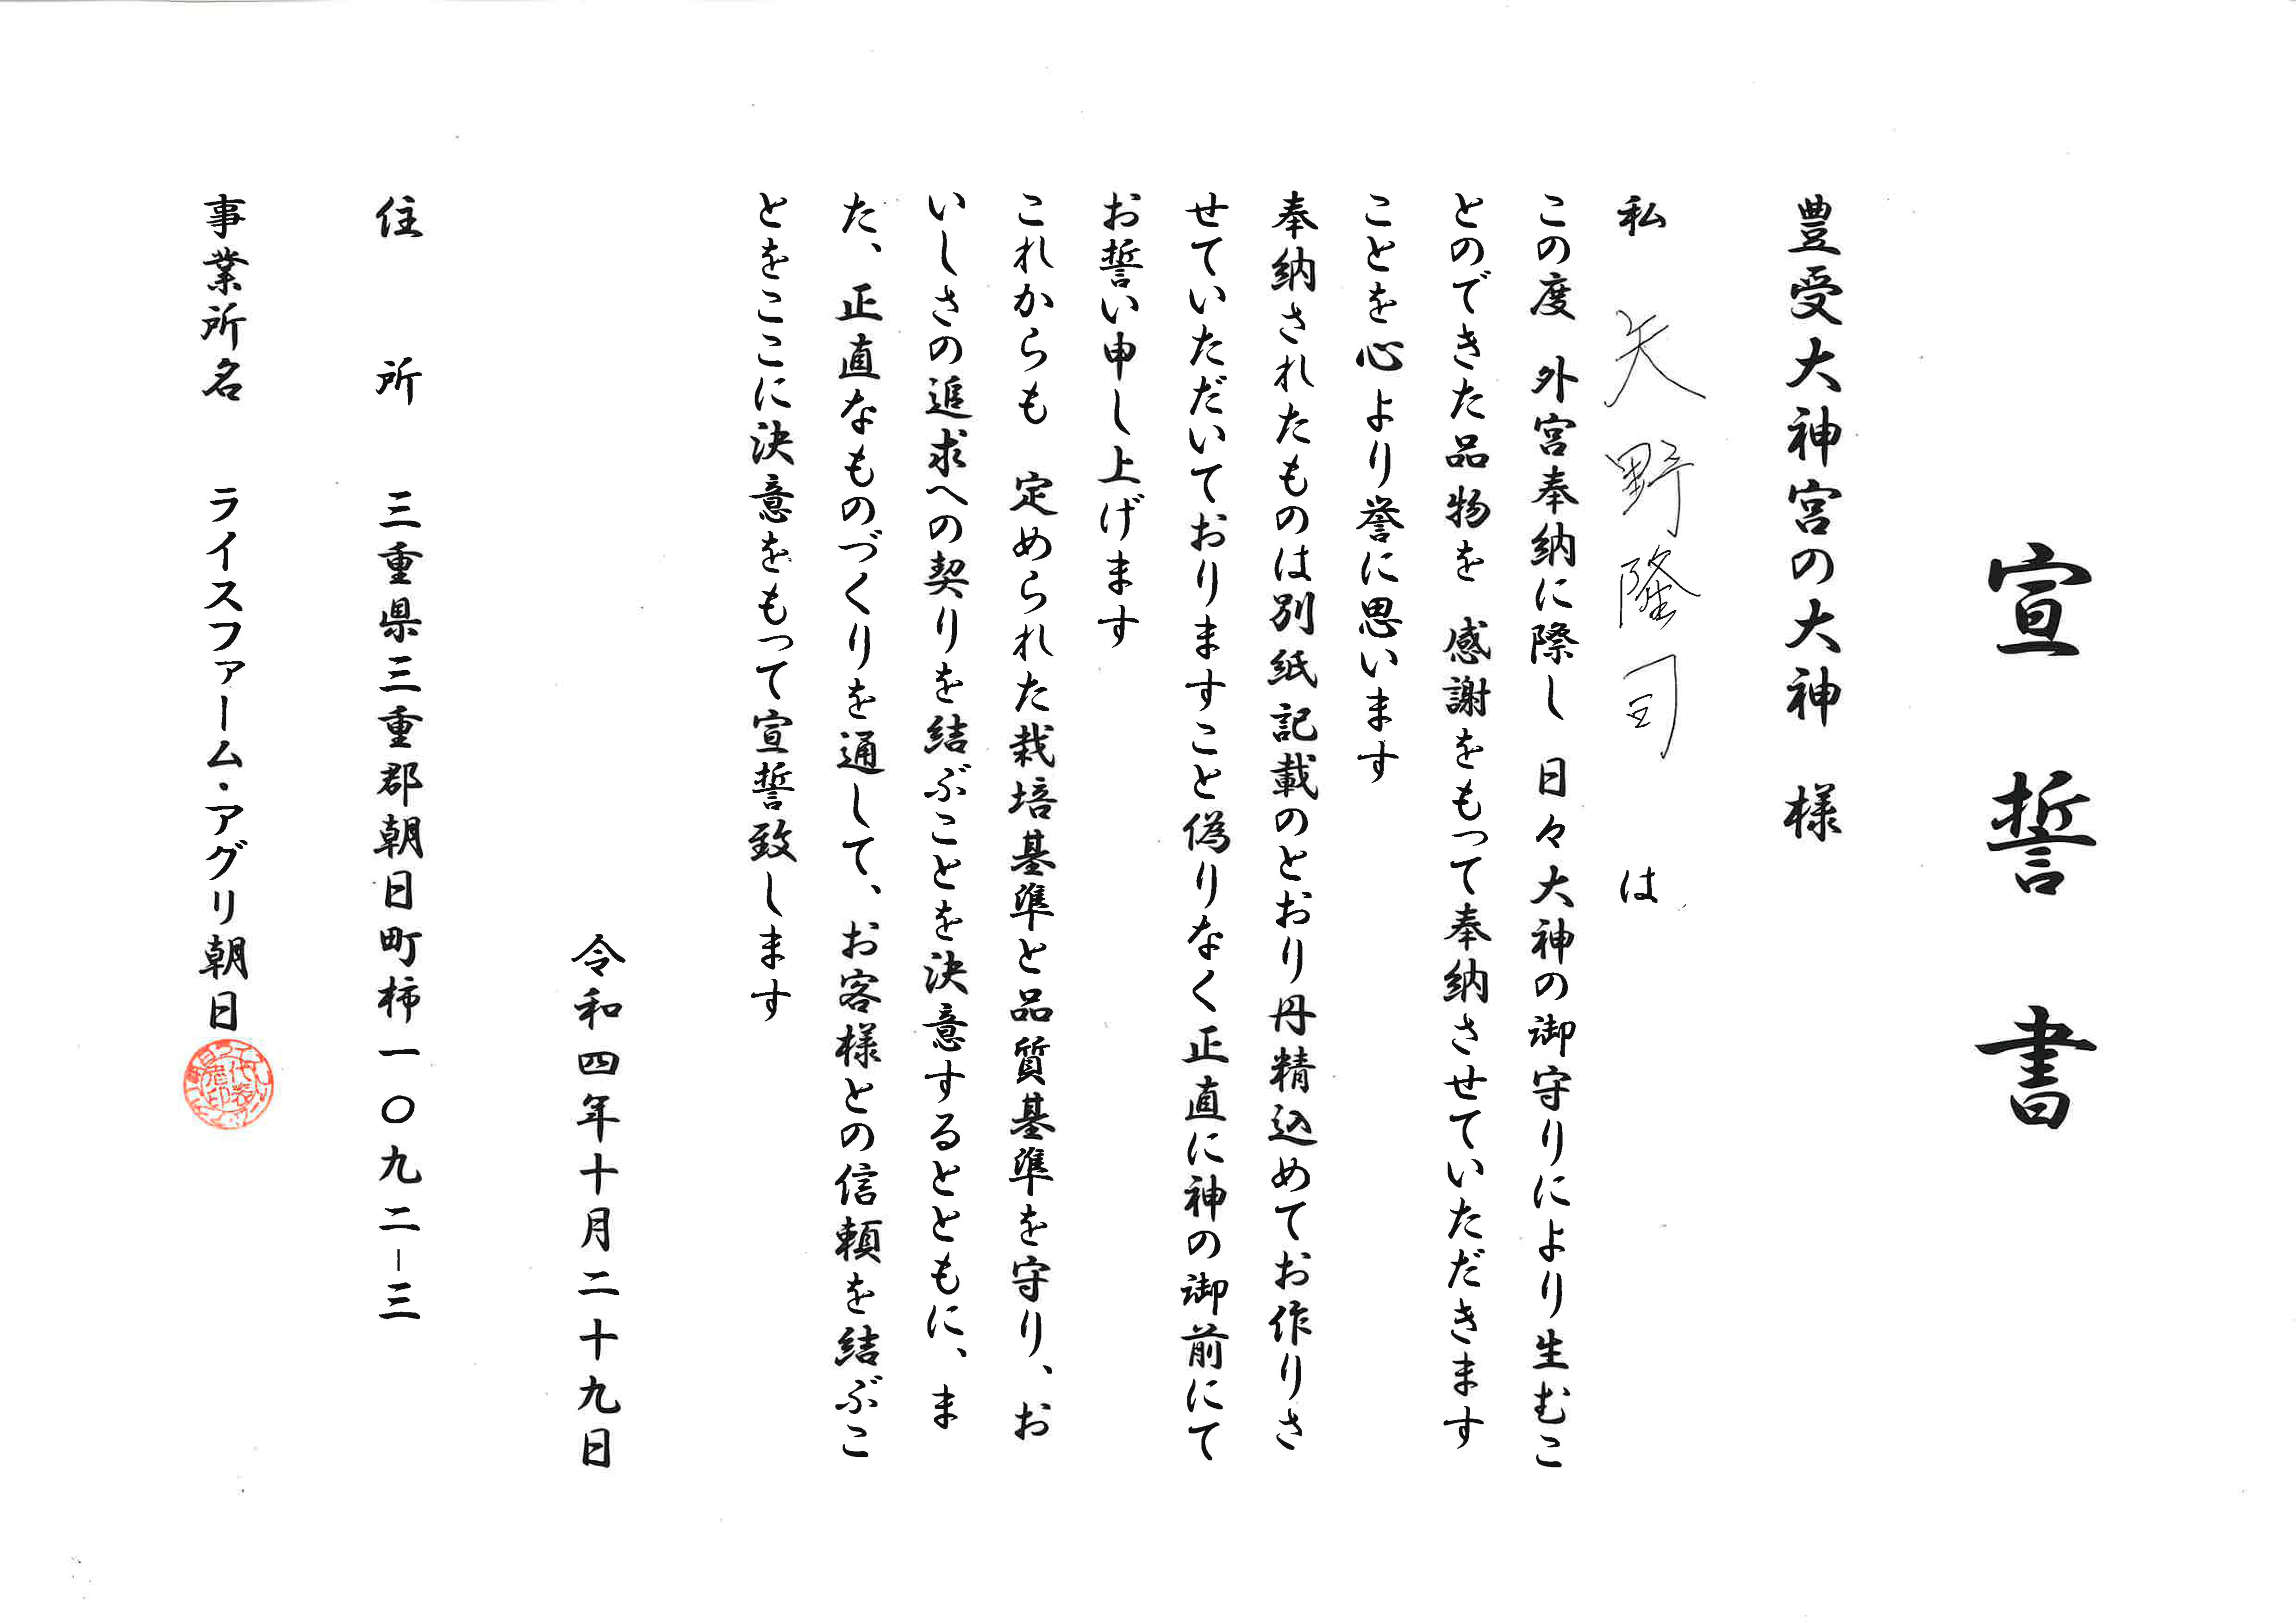 宣誓書
豊受大神宮の大神 様
私 矢野隆司 は
この度 外宮奉納に際し 日々大神の御守りにより生むこ
とのできた品物を 感謝をもって奉納させていただきます
ことを心より誉に思います
奉納されたものは別紙記載のとおり丹精込めてお作りさ
せていただいておりますこと偽りなく正直に神の御前にて
お誓い申し上げます
これからも 定められた栽培基準と品質基準を守り、お
いしさの追求への契りを結ぶことを決意するとともに、ま
た、正直なものづくりを通して、お客様との信頼を結ぶこ
とをここに決意をもって宣誓致します
令和四年十月二十九日
住所 三重県三重郡朝日町柿一〇九二-三
事業所名 ライスファーム・アグリ朝日